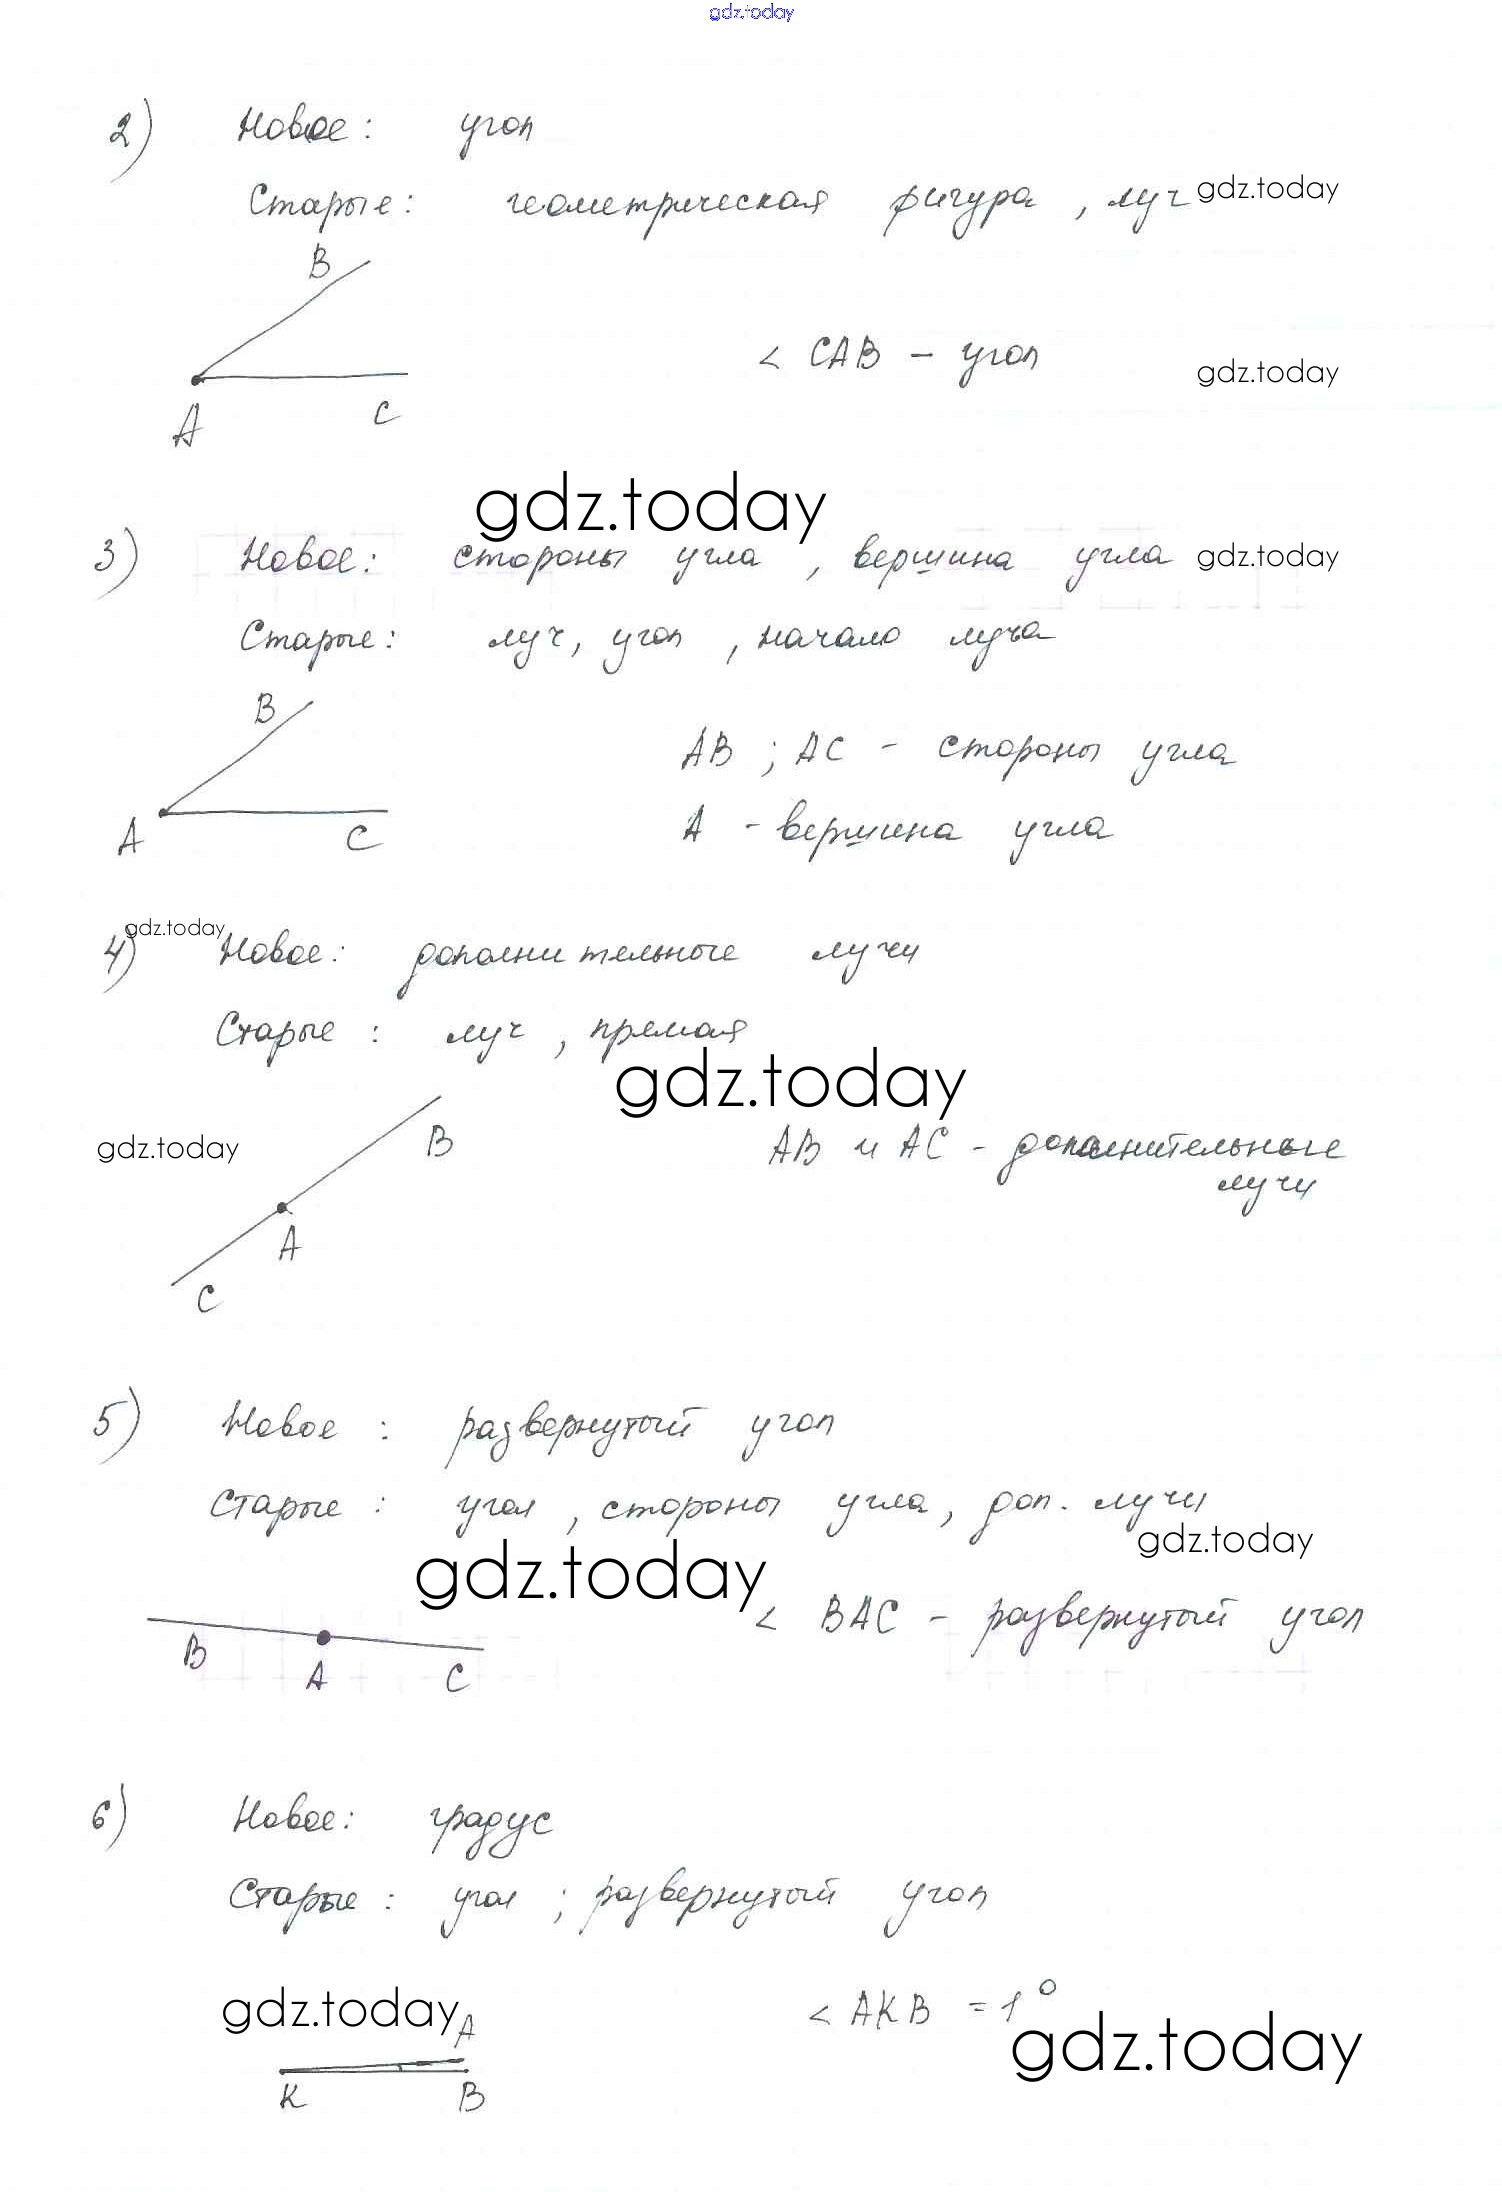 gdz.today
2) Новое: угол
Старые: геометрическая фигура, луч gdz.today
B
< CAB - угол gdz.today
A C
gdz.today
3) Новое: стороны угла, вершина угла gdz.today
Старые: луч, угол, начало луча
B
AB ; AC - стороны угла
A C
A - вершина угла
gdz.today
4) Новое: дополнительные лучи
Старые: луч, прямая
gdz.today
gdz.today
B
AB и AC - дополнительные
лучи
A
C
5) Новое: развернутый угол
Старые: угол, стороны угла, доп. лучи
gdz.today
gdz.today
< BAC - развернутый угол
B A C
6) Новое: градус
Старые: угол ; развернутый угол
gdz.today
A
< AKB = 1°
gdz.today
K B